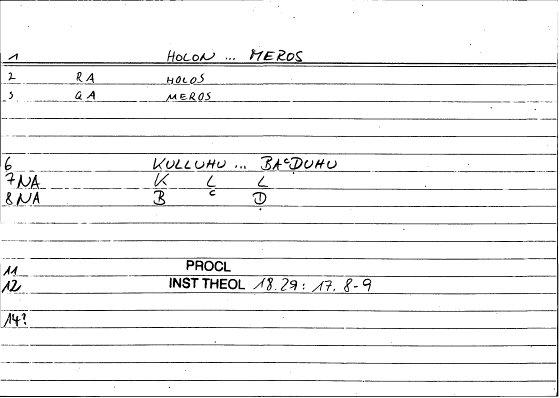 1 HOLON ... MEROS
2 RA HOLOS
3 QA MEROS
6 KULLUHU ... BAᶜḌUHU
7 NA K L L
8 NA B ᶜ Ḍ
11 PROCL
12 INST THEOL 18.29: 17. 8-9
14?